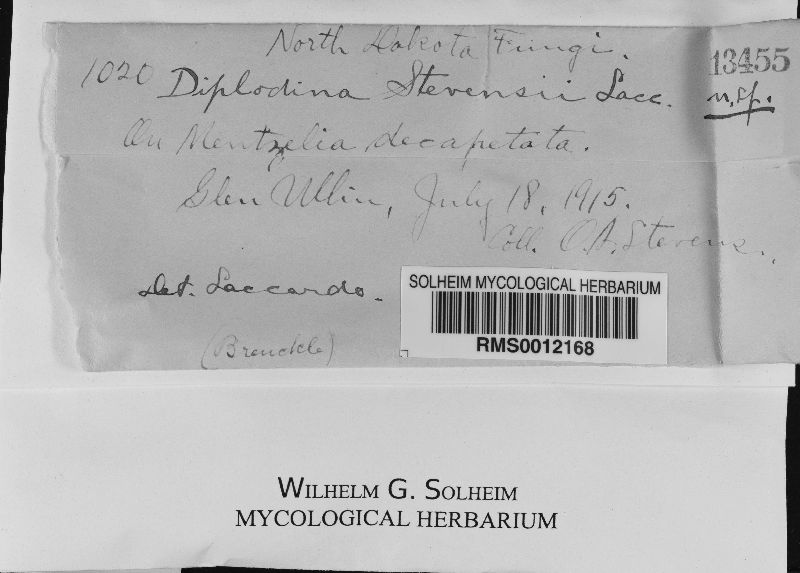 North Dakota Fungi.
13455
1020 Diplodina Stevensii Sacc. n. sp.
On Mentzelia decapetata.
Glen Ullin, July 18, 1915.
Coll. O. A. Stevens.
Det. Saccardo.
(Brenckle)
SOLHEIM MYCOLOGICAL HERBARIUM
RMS0012168
WILHELM G. SOLHEIM
MYCOLOGICAL HERBARIUM